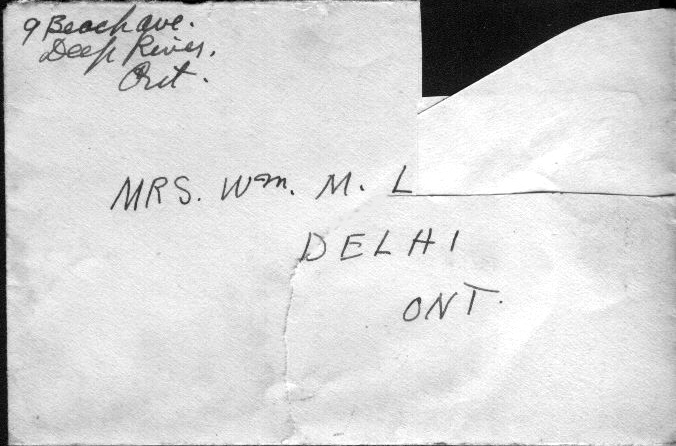 9 Beach ave.
Deep River.
Ont.
MRS. Wm. M. L
DELHI
ONT.